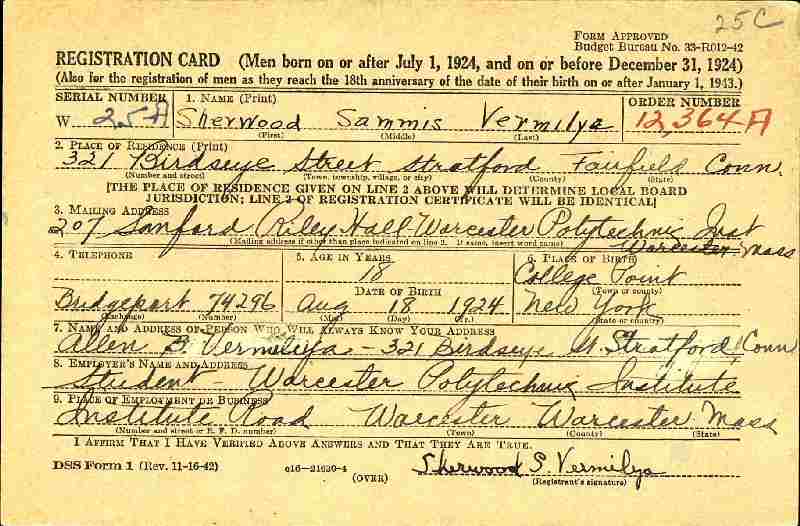 25C
FORM APPROVED
Budget Bureau No. 33-R012-42
REGISTRATION CARD (Men born on or after July 1, 1924, and on or before December 31, 1924)
(Also for the registration of men as they reach the 18th anniversary of the date of their birth on or after January 1, 1943.)
SERIAL NUMBER 1. NAME (Print) ORDER NUMBER
W 25A Sherwood Sammis Vermilya 12,364A
(First) (Middle) (Last)
2. PLACE OF RESIDENCE (Print)
321 Birdseye Street Stratford Fairfield Conn.
(Number and street) (Town, township, village, or city) (County) (State)
[THE PLACE OF RESIDENCE GIVEN ON LINE 2 ABOVE WILL DETERMINE LOCAL BOARD
JURISDICTION; LINE 2 OF REGISTRATION CERTIFICATE WILL BE IDENTICAL]
3. MAILING ADDRESS
207 Sanford Riley Hall Worcester Polytechnic Inst
Worcester Mass
(Mailing address if other than place indicated on line 2. If same, insert word same)
4. TELEPHONE 5. AGE IN YEARS 6. PLACE OF BIRTH
18 College Point
DATE OF BIRTH (Town or county)
Bridgeport 74296 Aug 18 1924 New York
(Exchange) (Number) (Mo.) (Day) (Yr.) (State or country)
7. NAME AND ADDRESS OF PERSON WHO WILL ALWAYS KNOW YOUR ADDRESS
Allen B. Vermilya - 321 Birdseye St. Stratford, Conn
8. EMPLOYER'S NAME AND ADDRESS
Student - Worcester Polytechnic Institute
9. PLACE OF EMPLOYMENT OR BUSINESS
Institute Road Worcester Worcester Mass
(Number and street or R. F. D. number) (Town) (County) (State)
I AFFIRM THAT I HAVE VERIFIED ABOVE ANSWERS AND THAT THEY ARE TRUE.
DSS Form 1 (Rev. 11-16-42) c16-21630-4 Sherwood S. Vermilya
(OVER) (Registrant's signature)